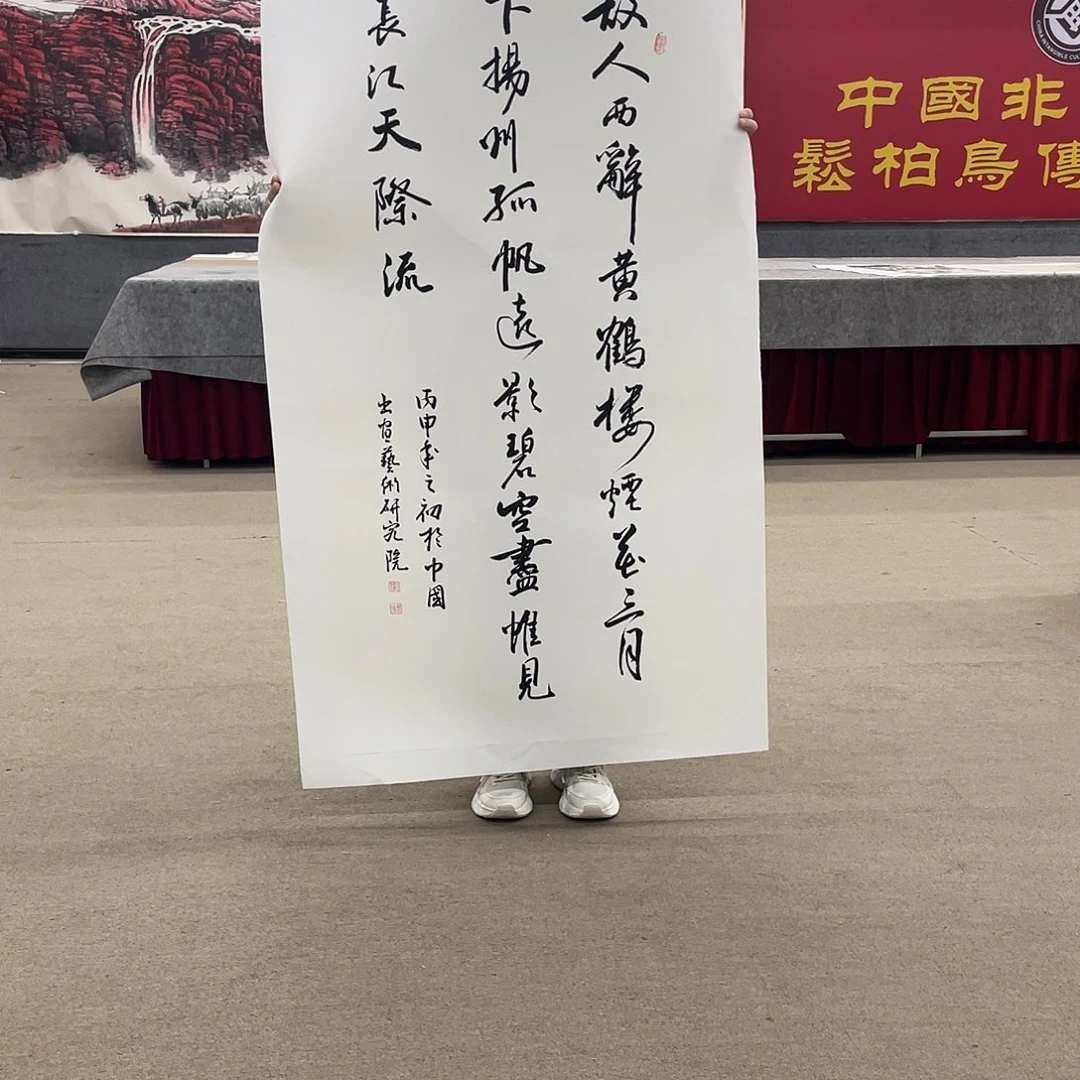 故人西辭黄鶴樓煙花三月
下揚州孤帆遠影碧空盡惟見
長江天際流
丙申年之初於中國
書畫藝術研究院
中國非
鬆柏鳥傳
CHINA INTANGIBLE CUL